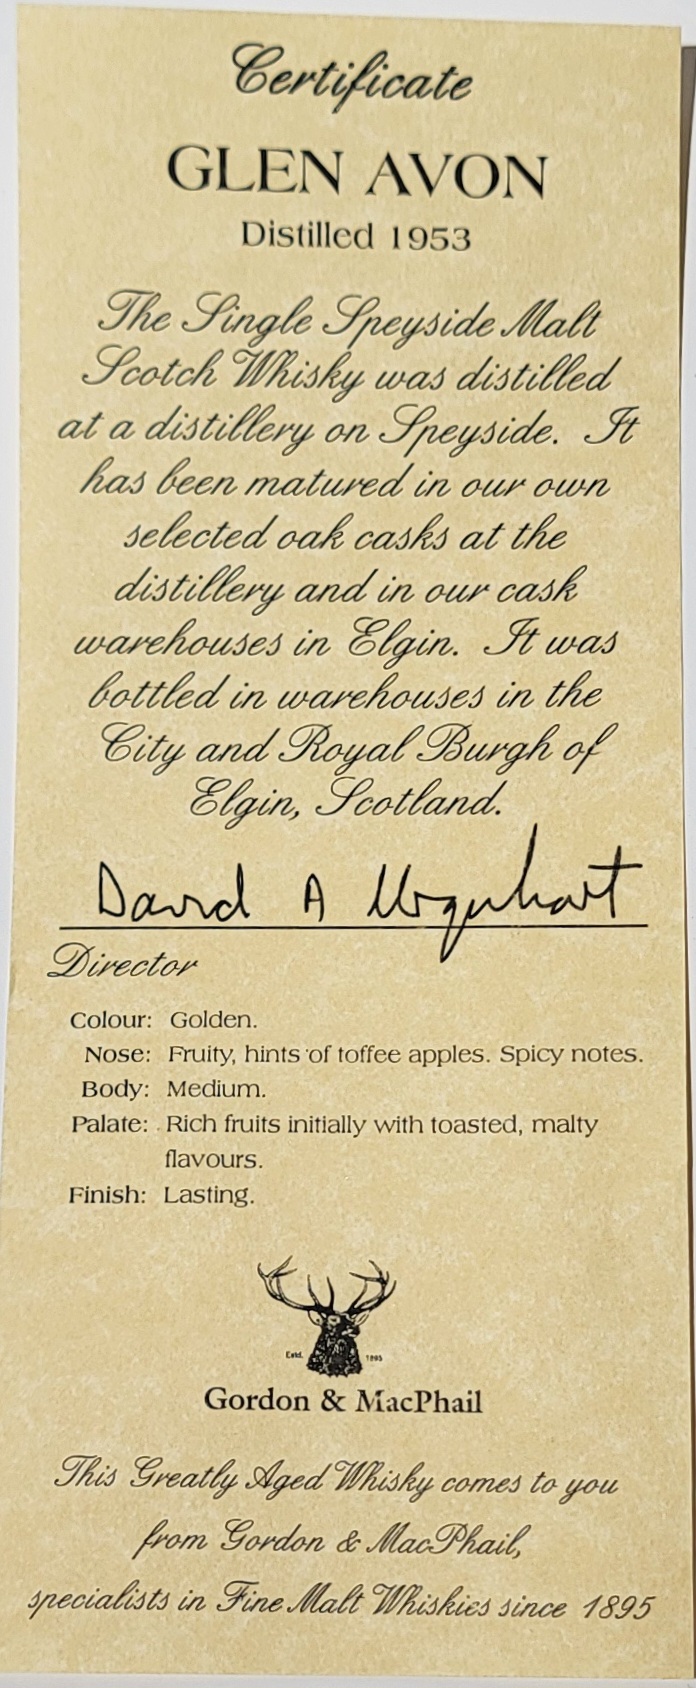 Certificate
GLEN AVON
Distilled 1953
The Single Speyside Malt
Scotch Whisky was distilled
at a distillery on Speyside. It
has been matured in our own
selected oak casks at the
distillery and in our cask
warehouses in Elgin. It was
bottled in warehouses in the
City and Royal Burgh of
Elgin, Scotland.
David A Urquhart
Director
Colour: Golden.
Nose: Fruity, hints of toffee apples. Spicy notes.
Body: Medium.
Palate: Rich fruits initially with toasted, malty
flavours.
Finish: Lasting.
Estd. 1895
Gordon & MacPhail
This Greatly Aged Whisky comes to you
from Gordon & MacPhail,
specialists in Fine Malt Whiskies since 1895